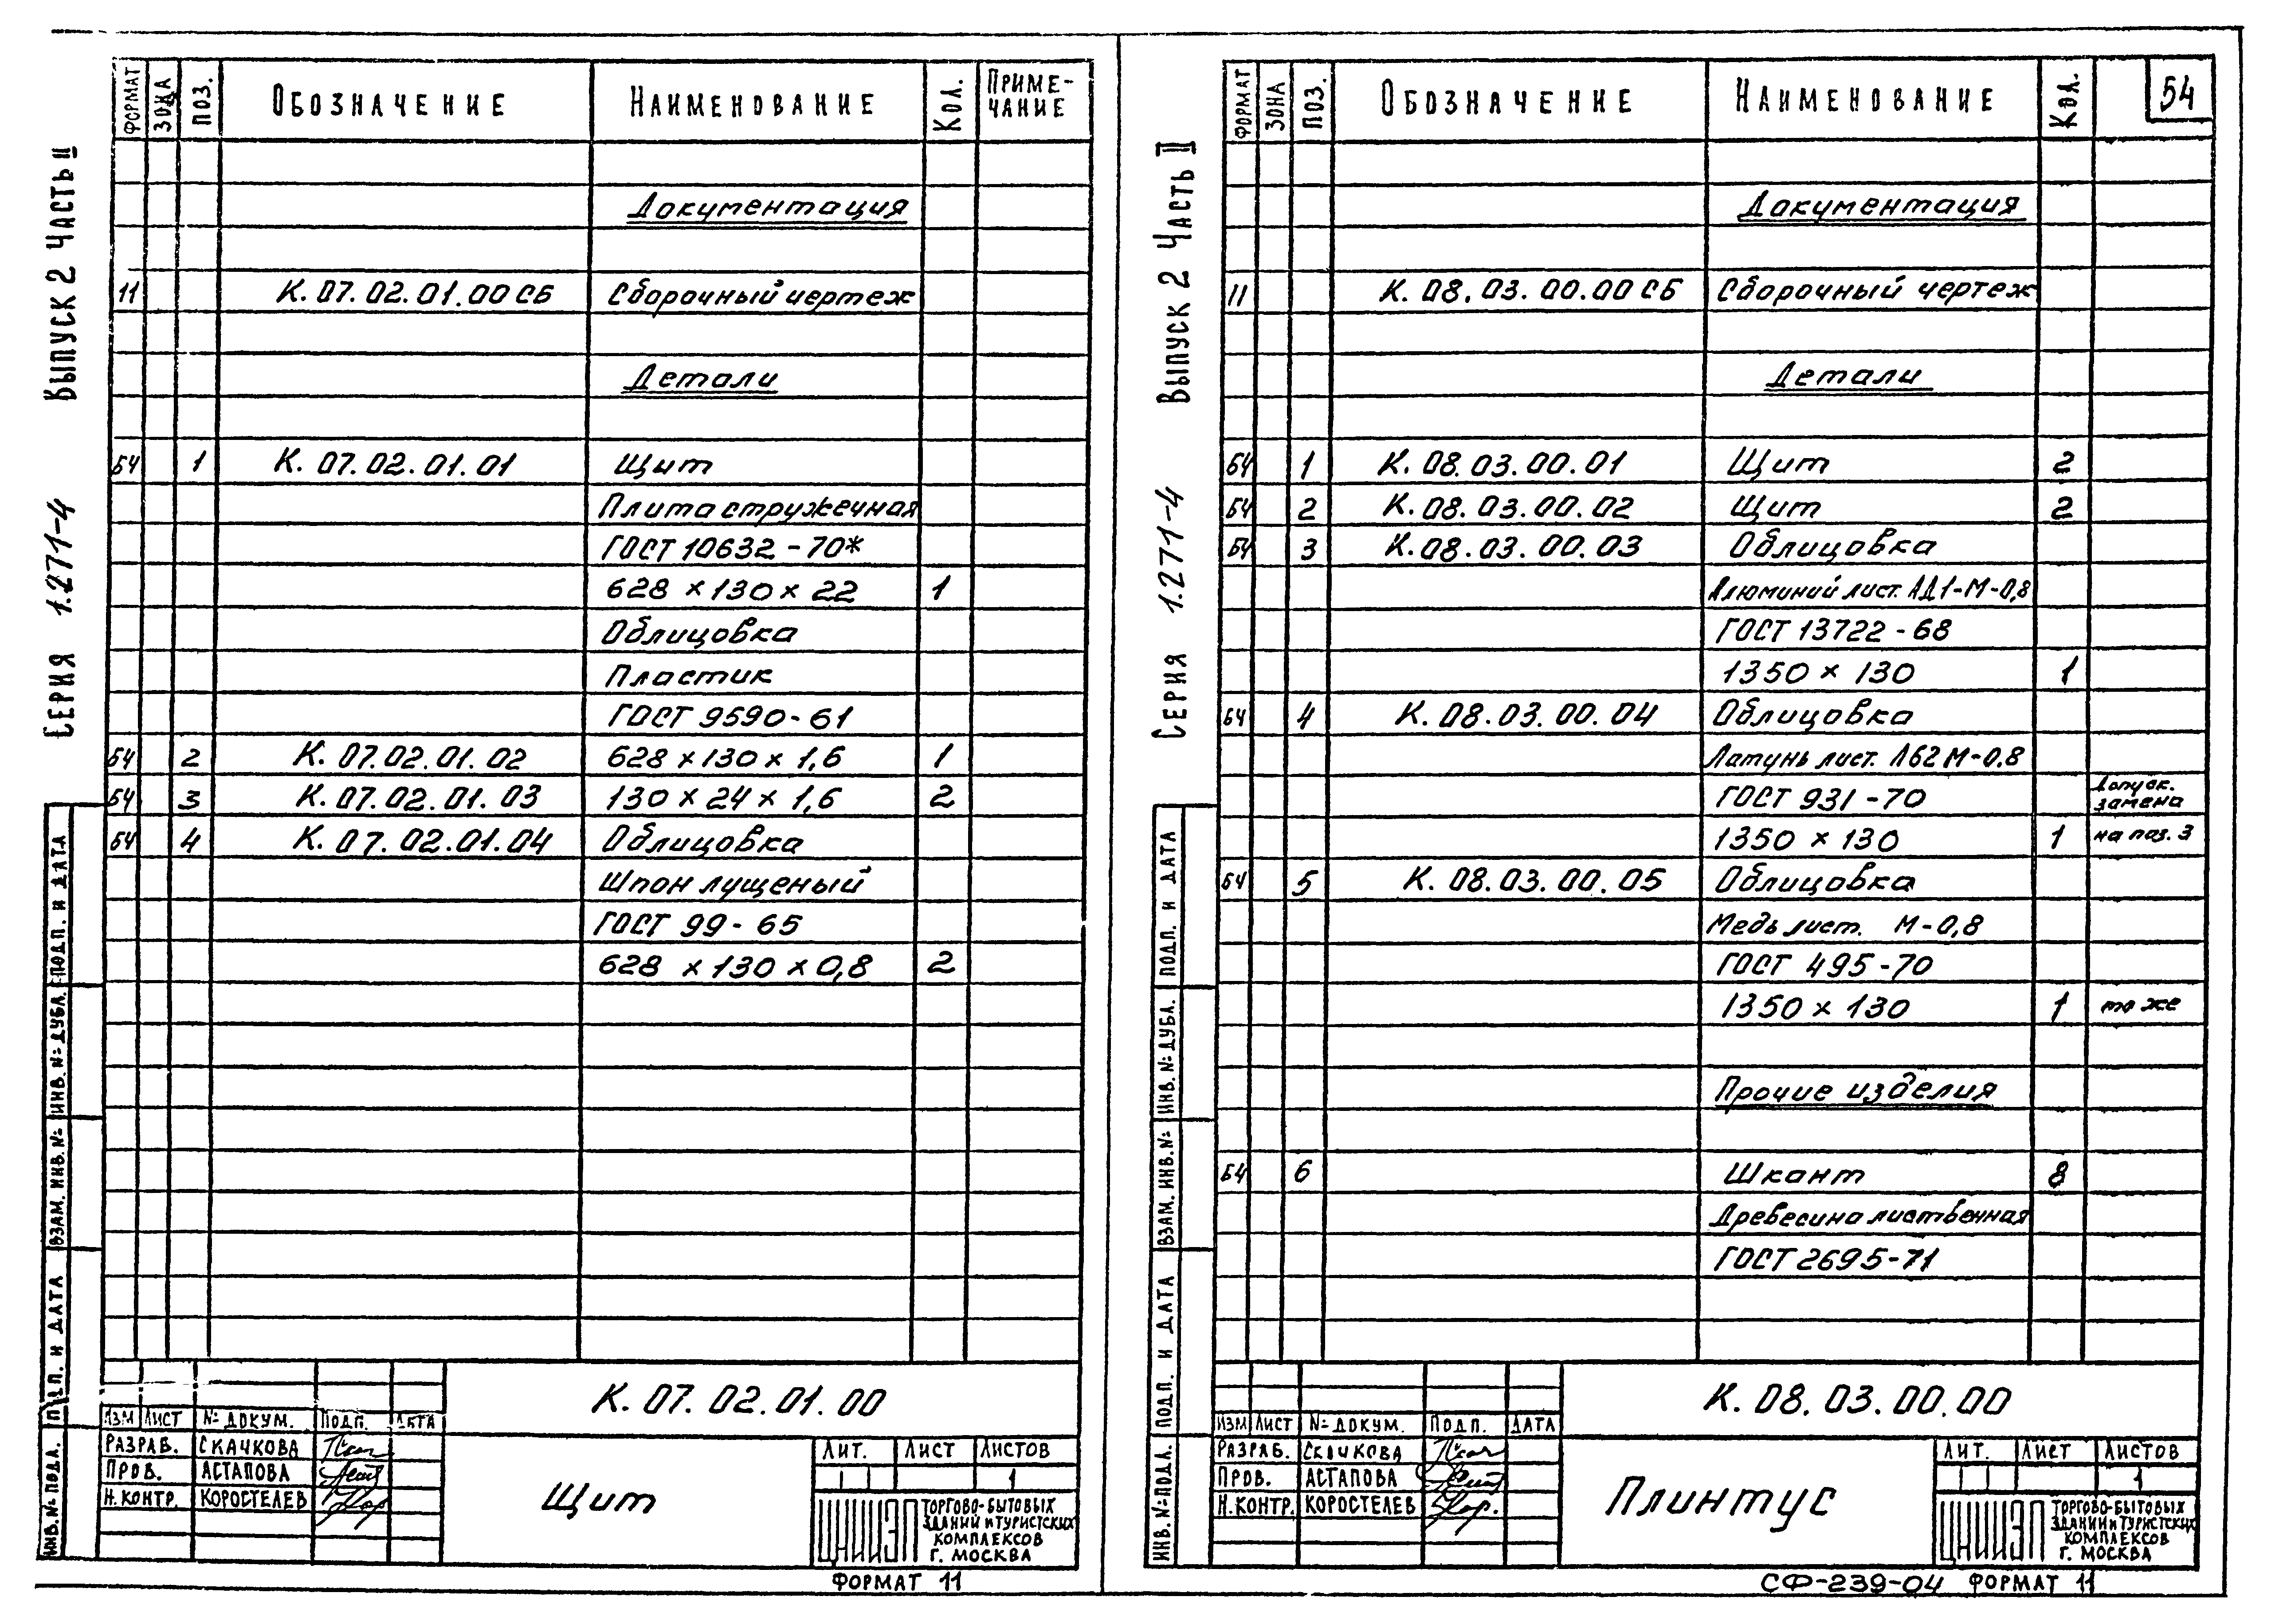 Выпуск 2 Часть II
Серия 1.271-4
ФОРМАТ ЗОНА ПОЗ. ОБОЗНАЧЕНИЕ НАИМЕНОВАНИЕ КОЛ. ПРИМЕ-
ЧАНИЕ
Документация
11 К.07.02.01.00 СБ Сборочный чертеж
Детали
БЧ 1 К.07.02.01.01 Щит
Плита стружечная
ГОСТ 10632-70*
628 × 130 × 22 1
Облицовка
Пластик
ГОСТ 9590-61
БЧ 2 К.07.02.01.02 628 × 130 × 1,6 1
БЧ 3 К.07.02.01.03 130 × 24 × 1,6 2
БЧ 4 К.07.02.01.04 Облицовка
Шпон лущеный
ГОСТ 99-65
628 × 130 × 0,8 2
ПОДП. И ДАТА
ИНВ.№ ДУБЛ.
ВЗАМ. ИНВ.№
ПОДП. И ДАТА
ИНВ.№ ПОДЛ.
К.07.02.01.00
ИЗМ ЛИСТ № ДОКУМ. ПОДП. ДАТА
РАЗРАБ. СКАЧКОВА
ПРОВ. АСТАПОВА
Н.КОНТР. КОРОСТЕЛЕВ
Щит
ЛИТ. ЛИСТ ЛИСТОВ
1
ЦНИИЭП ТОРГОВО-БЫТОВЫХ
ЗДАНИЙ И ТУРИСТСКИХ
КОМПЛЕКСОВ
Г. МОСКВА
ФОРМАТ 11
Выпуск 2 Часть II
Серия 1.271-4
ФОРМАТ ЗОНА ПОЗ. ОБОЗНАЧЕНИЕ НАИМЕНОВАНИЕ КОЛ. 54
Документация
11 К.08.03.00.00 СБ Сборочный чертеж
Детали
БЧ 1 К.08.03.00.01 Щит 2
БЧ 2 К.08.03.00.02 Щит 2
БЧ 3 К.08.03.00.03 Облицовка
Алюминий лист. АД1-М-0,8
ГОСТ 13722-68
1350 × 130 1
БЧ 4 К.08.03.00.04 Облицовка
Латунь лист. Л62М-0.8
ГОСТ 931-70 Допуск.
замена
1350 × 130 1 на поз. 3
БЧ 5 К.08.03.00.05 Облицовка
Медь лист. М-0,8
ГОСТ 495-70
1350 × 130 1 то же
Прочие изделия
БЧ 6 Шкант 8
Древесина лиственная
ГОСТ 2695-71
ПОДП. И ДАТА
ИНВ.№ ДУБЛ.
ВЗАМ. ИНВ.№
ПОДП. И ДАТА
ИНВ.№ ПОДЛ.
К.08.03.00.00
ИЗМ ЛИСТ № ДОКУМ. ПОДП. ДАТА
РАЗРАБ. СКАЧКОВА
ПРОВ. АСТАПОВА
Н.КОНТР. КОРОСТЕЛЕВ
Плинтус
ЛИТ. ЛИСТ ЛИСТОВ
1
ЦНИИЭП ТОРГОВО-БЫТОВЫХ
ЗДАНИЙ И ТУРИСТСКИХ
КОМПЛЕКСОВ
Г. МОСКВА
СФ-239-04 ФОРМАТ 11